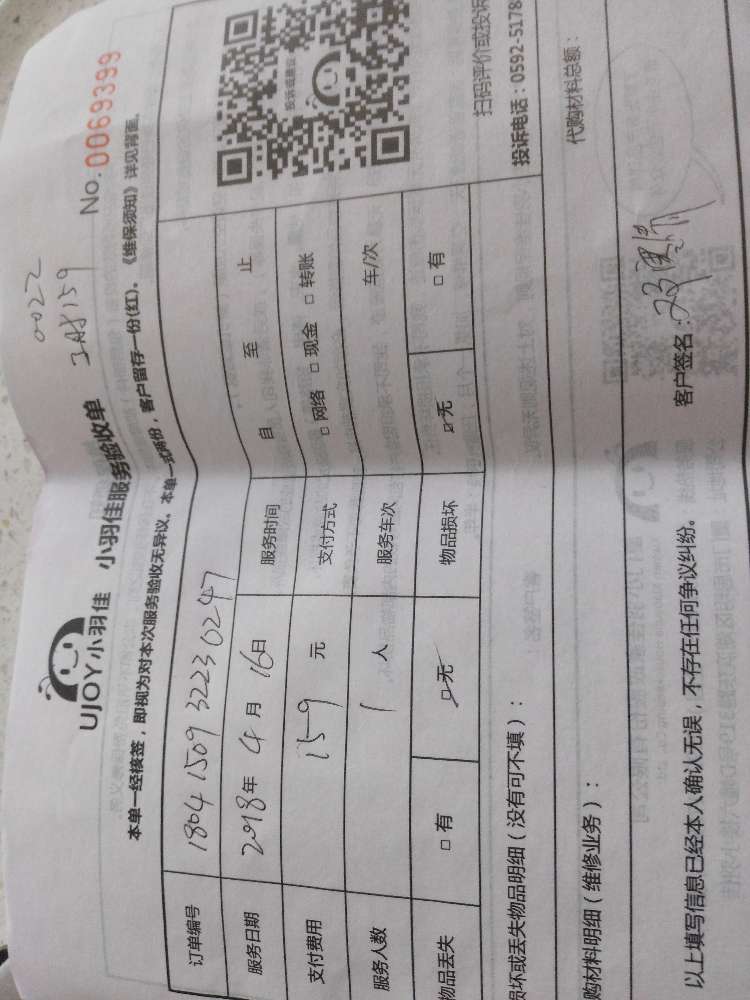 0022
工号159
UJOY小羽佳 小羽佳服务验收单 No.0069399
本单一经核签,即视为对本次服务验收无异议。本单一式两份,客户留存一份(红)。《维保须知》详见背面。
订单编号 1804 1509 3223 0247
服务日期 2018年4月16日 服务时间 自 至 止
支付费用 159 元 支付方式 □网络 □现金 □转账
服务人数 1 人 服务车次 车/次
物品丢失 □有 ☑无 物品损坏 ☑无 □有
投诉或建议
扫码评价或投诉
投诉电话:0592-5178
损坏或丢失物品明细(没有可不填):
代购材料总额:
购材料明细(维修业务):
以上填写信息已经本人确认无误,不存在任何争议纠纷。 客户签名: